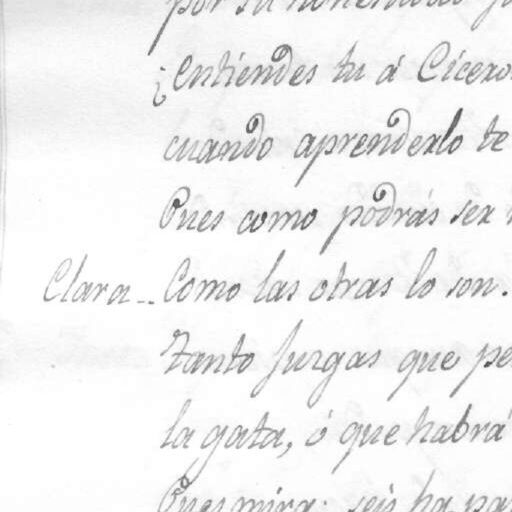 por su honestidad
¿Entiendes tu á Cicero
cuando aprenderlo te
Pues como podrás ser
Clara -- Como las otras lo son.
Tanto Juzgas que pe
la gata, ó que habrá
Pues mira: seis ha pa